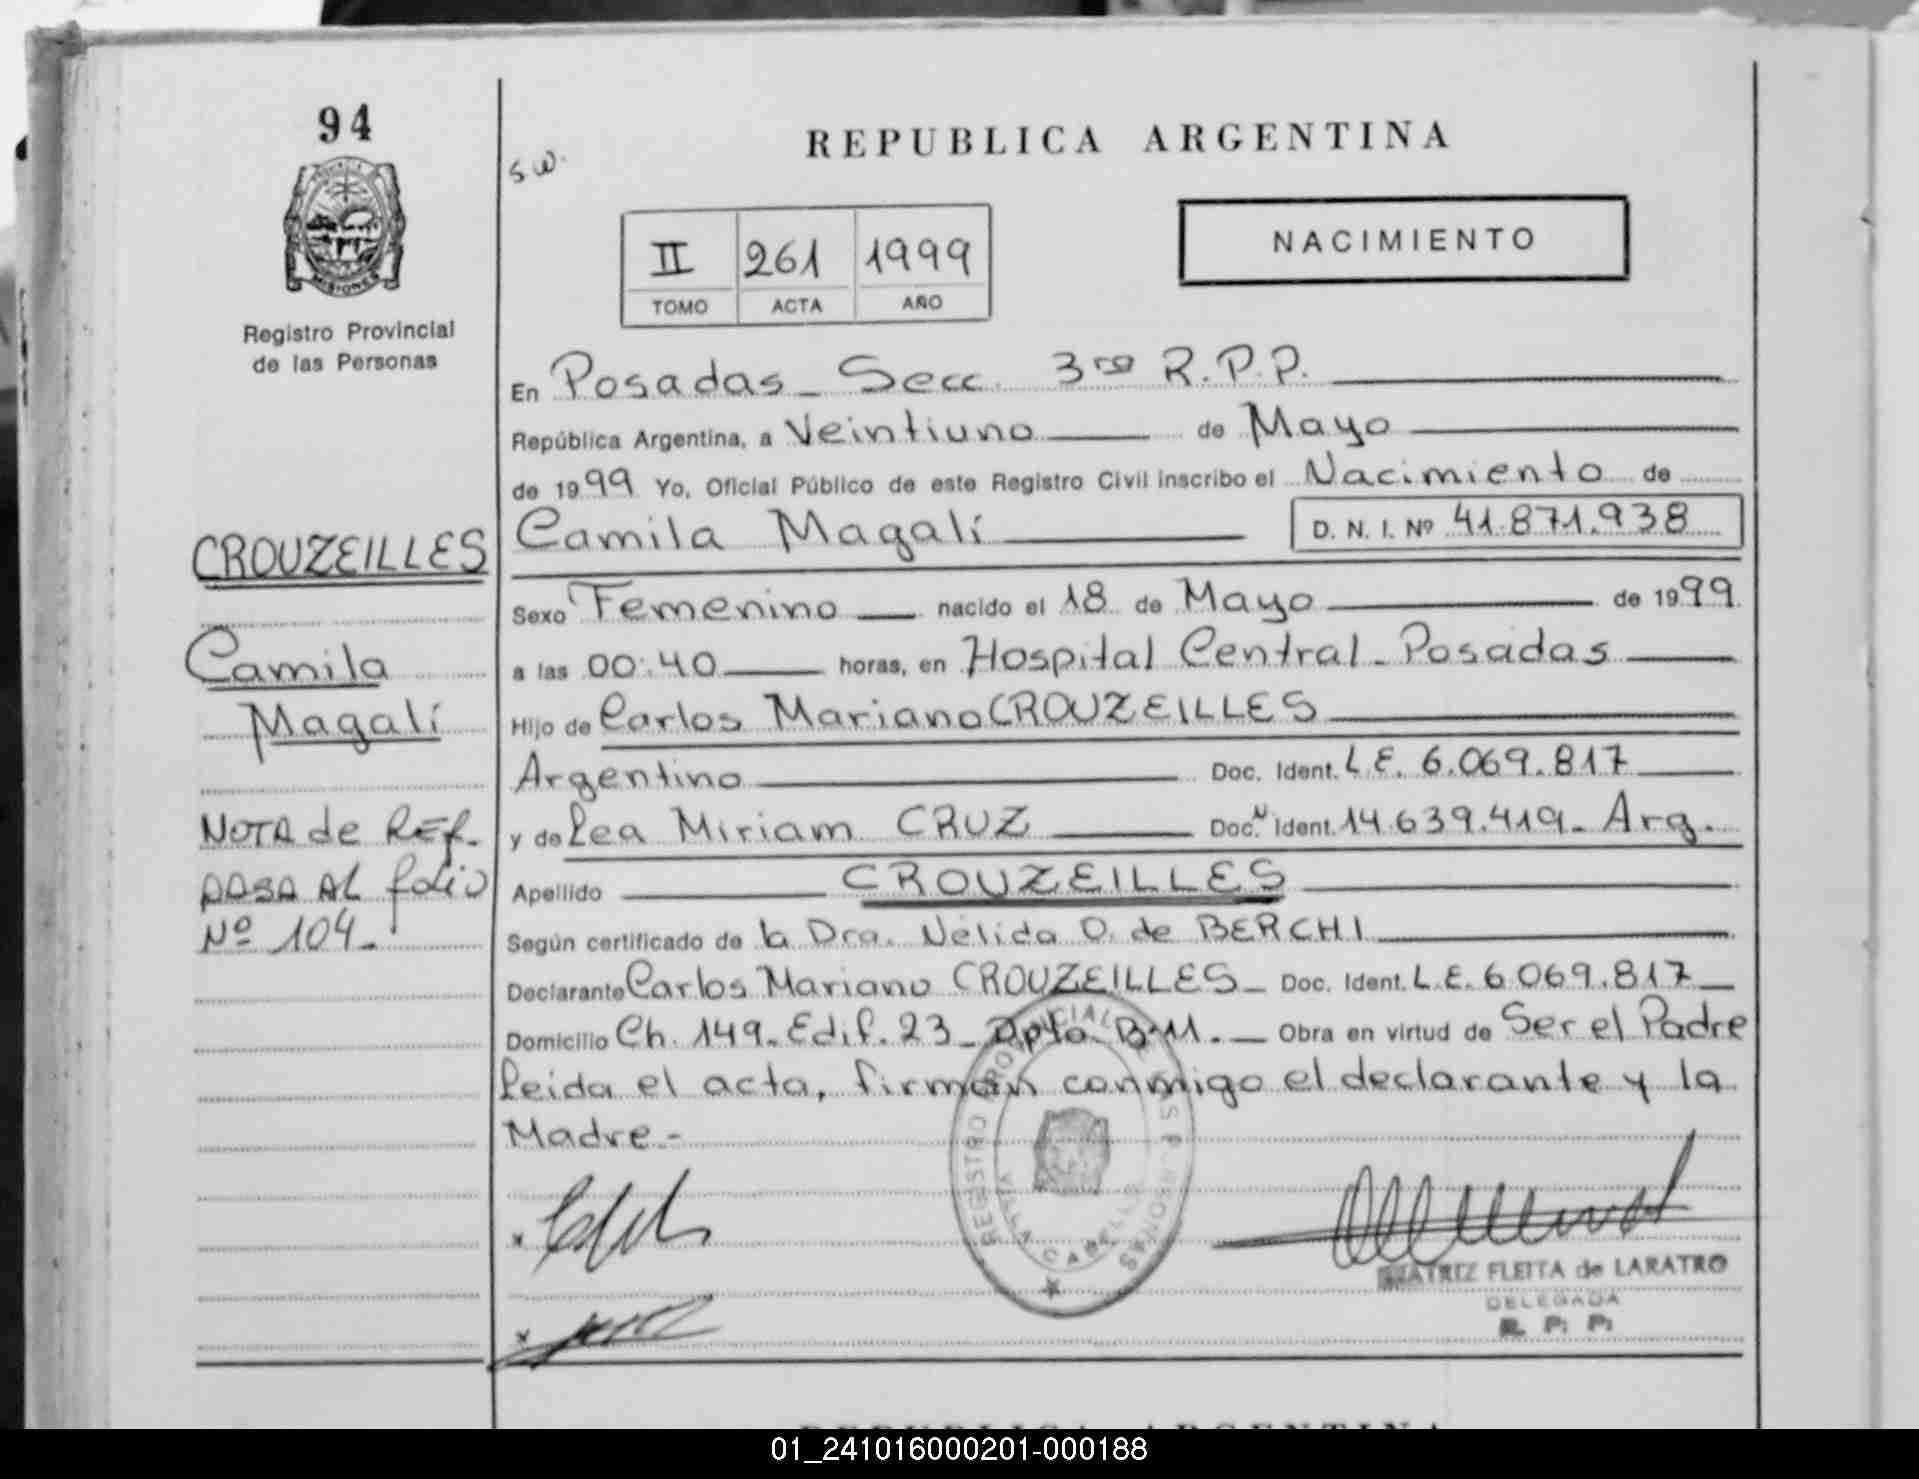 94
REPUBLICA ARGENTINA
S.W.
MISIONES
II 261 1999
TOMO ACTA AÑO
NACIMIENTO
Registro Provincial
de las Personas
En Posadas_ Secc. 3ra R.P.P.
República Argentina, a Veintiuno de Mayo
de 1999 Yo, Oficial Público de este Registro Civil inscribo el Nacimiento de
Camila Magalí D. N. I. Nº 41.871.938
CROUZEILLES
Camila
Magalí
NOTA de REf.
PASA AL folio
Nº 104.-
Sexo Femenino nacido el 18 de Mayo de 1999
a las 00:40 horas, en Hospital Central_Posadas
Hijo de Carlos Mariano CROUZEILLES
Argentino Doc. Ident. L.E. 6.069.817
y de Lea Miriam CRUZ Doc.N Ident. 14.639.419_ Arg.
Apellido CROUZEILLES
Según certificado de la Dra. Nélida O. de BERCHI
Declarante Carlos Mariano CROUZEILLES_ Doc. Ident. L.E. 6.069.817
Domicilio Ch. 149_ Edif. 23_ Dpto. B-11._ Obra en virtud de Ser el Padre
Leida el acta, firman conmigo el declarante y la
Madre.-
REGISTRO PROVINCIAL DE LAS PERSONAS
VILLA CABELLO
BEATRIZ FLEITA de LARATRO
DELEGADA
R. P. P.
REPUBLICA ARGENTINA
01_241016000201-000188